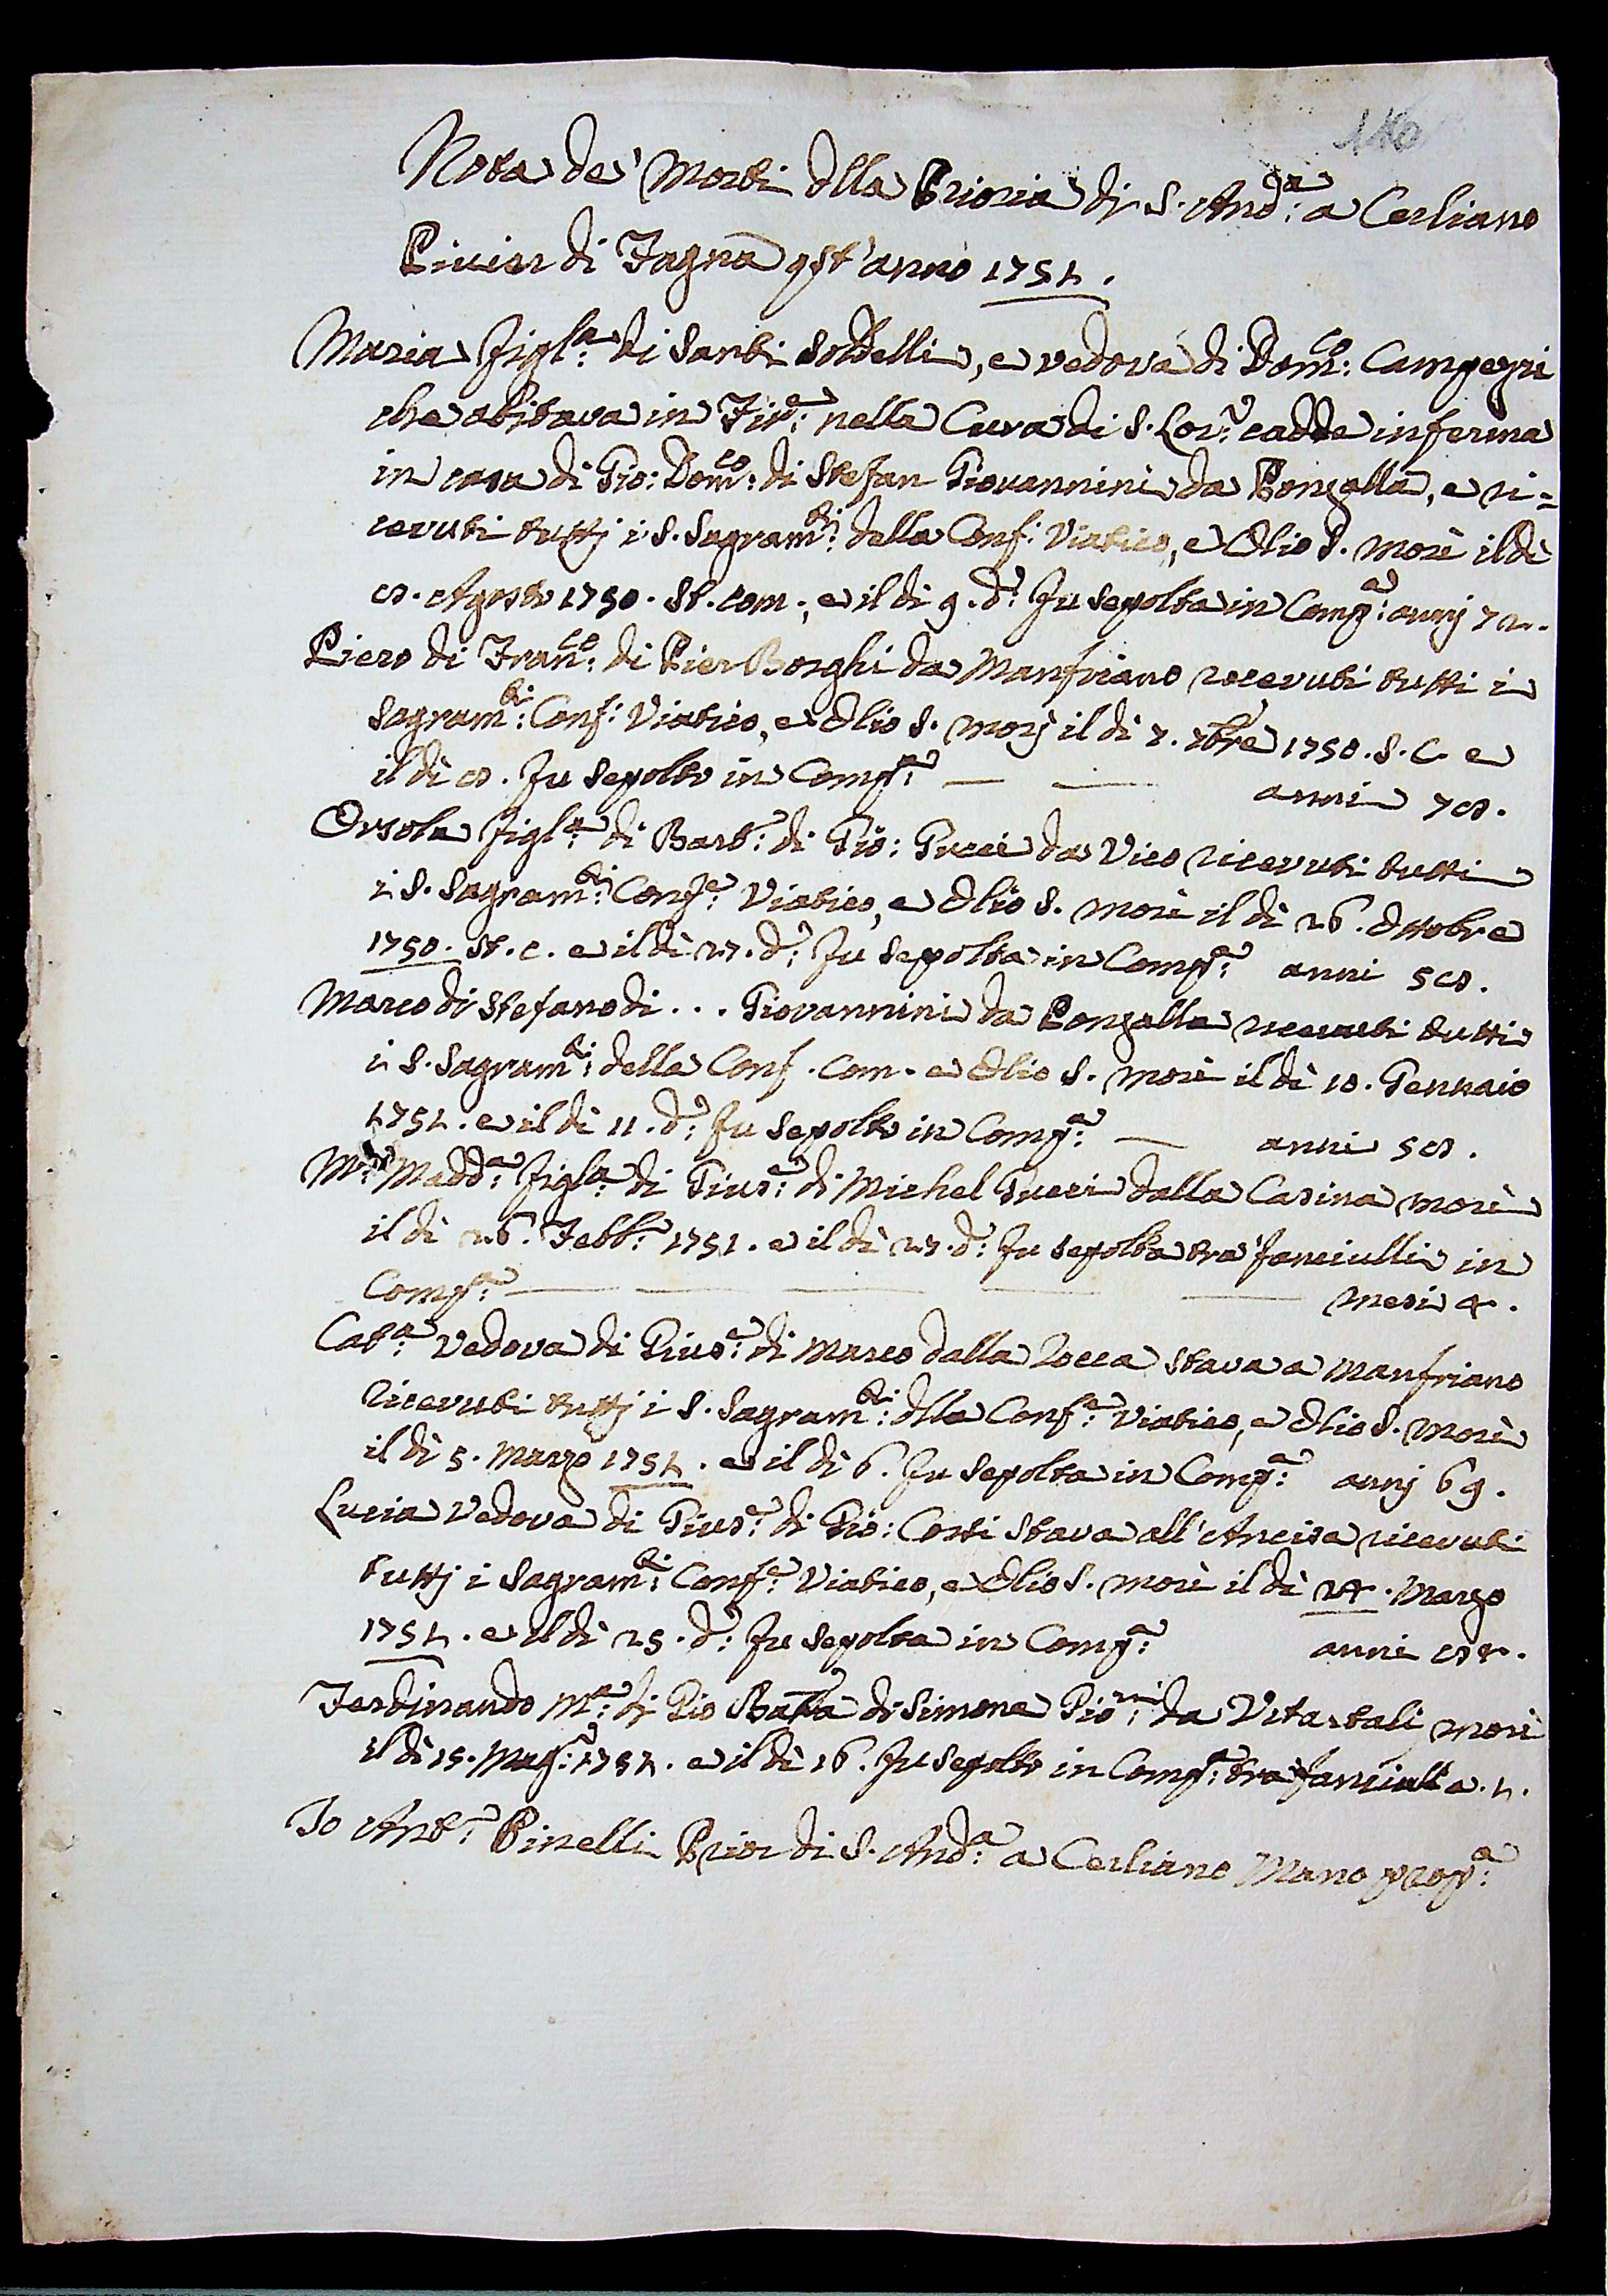 Nota de' Morti dlla Prioria di S. And.ª: a Cerliano
Pivier di Fagna qst'anno 1751.
Maria Figl.ª: di Santi Soldelli, e vedova di Dom.co: Campegri
che abitava in Fir.e: nella Cura di S. Lor.o: cadde inferma
in casa di Gio: Dom.co: di Stefan Giovannini da Ponzalla, e ri=
cevuti tuttj i S. Sagram.ti: della Conf: Viatico, e Olio S. morì il dì
8. Agosto 1750. St. com., e il di 9. d.o: fu sepolta in Comp.ª: annj 72.
Piero di Fran.co: di Pier Borghi da Manfriano recevuti tutti i
Sagram.ti: Conf: Viatico, e Olio S. morj il dì 7. 7bre 1750. S. C. e
il dì 8. fu sepolto in Comp.ª: — — anni 78.
Orsola Figl.ª: di Bart.o: di Gio: Pucci da Vico ricevuti tutti
i S. Sagram.ti: Conf.e: Viatico, e Olio S. morì il dì 26. Ottobre
1750. St. c. e il dì 27. d.o: fu sepolta in Comp.ª: anni 58.
Marco di Stefano di . . . Giovannini da Ponzalla recevuti tutti
i S. Sagram.ti: della Conf. Com. e Olio S. morì il dì 10. Gennaio
1751. e il di 11. d.o: fu sepolto in Comp.ª: — anni 58.
M.ª: Madd.ª: Figl.ª: di Gius.e: di Michel Pucci dalla Casina morì
il dì 26. Febb.o: 1751. e il dì 27. d.o: fu sepolta tra' fanciulli in
Comp.ª: — — — — — Mesi 4.
Cat.ª: Vedova di Gius.e: di Marco dalla Rocca stava a Manfriano
ricevuti tuttj i S. Sagram.ti: dlla Conf.e: Viatico, e Olio S. morì
il dì 5. Marzo 1751. e il dì 6. fu sepolta in Comp.ª: annj 69.
Lucia Vedova di Gius.e: di Gio: Corti stava all'Ancisa ricevuti
tuttj i Sagram.ti: Conf.e: Viatico, e Olio S. morì il dì 24. Marzo
1751. e il dì 25. d.o: fu sepolta in Comp.ª: anni 84.
Ferdinando M.ª: di Gio Batta di Simone Gio.ni: da Vitartali morì
il dì 15. Mag.o: 1751. e il dì 16. fu sepolto in Comp.ª: tra fanciull a. 1.
Io Ant.o: Pinelli Prior di S. And.ª: a Cerliano Mano prop.ª: